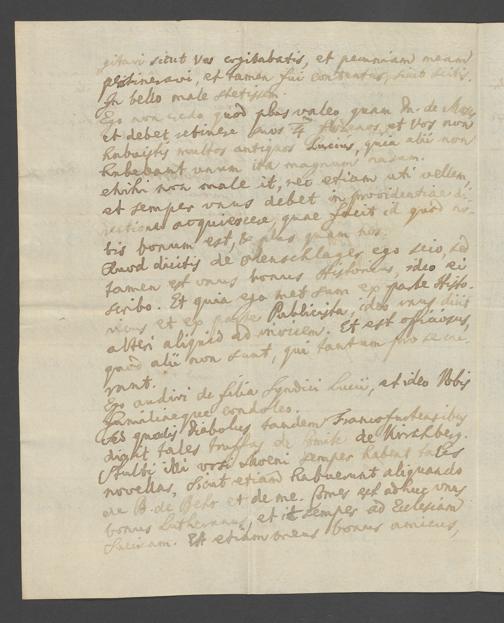 gitavi sicut vos cogitabatis, et pecuniam meam
et tamen fui contentus, sicut scitis.
In bello male stetissem.
Ego non credo quod plus valeo quam Dn. de
et debet retinere suos 4 et vos non
habuistis multos antiquos Lucius, quia alii non
habebant unum ita magnum nasum.
Mihi non male it, nec etiam uti vellem,
et semper unus debet in providentiae di-
rectione acquiescere, quae facit id quod no-
bis bonum est, & plus quam nos.
Quod dicitis de Ohlenschlager, ego scio, sed
tamen est unus bonus Historicus, ideo ei
scribo. Et quia ego met sum ex parte Histo-
ricus et ex parte Publicista, ideo unus dicit
alteri aliquid ad invicem. Et est officiosus,
quod alii non sunt, qui tantum pro se cu-
rant.
Ego audivi de filia Syndici Lucii, et ideo Vobis
Familiaeque condoleo.
Sed qualis diabolus tandem Francofurtensibus
dixit tales truffas de Comite de Kirschberg.
Stulti illi vosi Moeni semper habent tales
novellas, sicut etiam habuerunt aliquando
de B. de Behr et de me. Comes est adhuc unus
bonus Lutheranus, et it semper ad Eclesiam
suam. Est etiam meus bonus amicus,